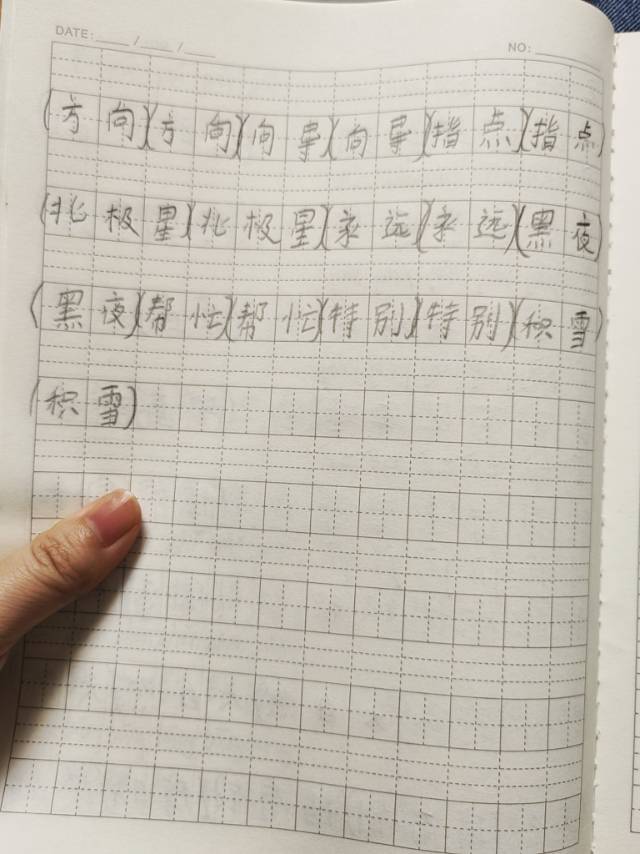 DATE: ____ / ____ / ____
NO: ________
(方向)(方向)(向导)(向导)(指点)(指点)
(北极星)(北极星)(永远)(永远)(黑夜)
(黑夜)(帮忙)(帮忙)(特别)(特别)(积雪)
(积雪)